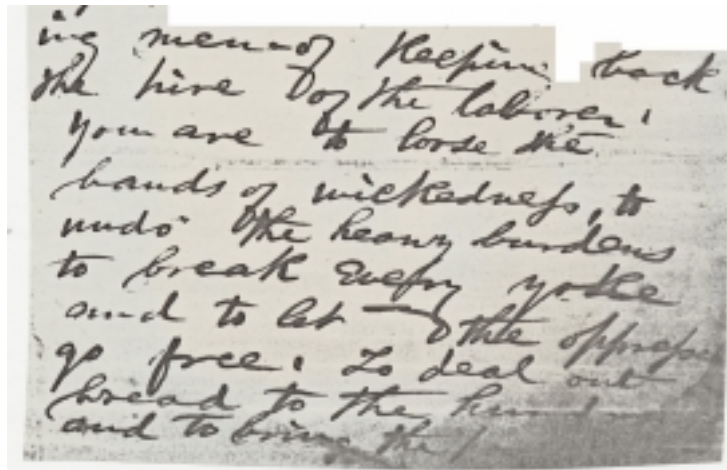 ing men - of keeping back
the hire of the laborer.
You are to loose the
bands of wickedness, to
undo the heavy burdens
to break every yoke
and to let the oppress
go free. To deal out
bread to the hun
and to bring the